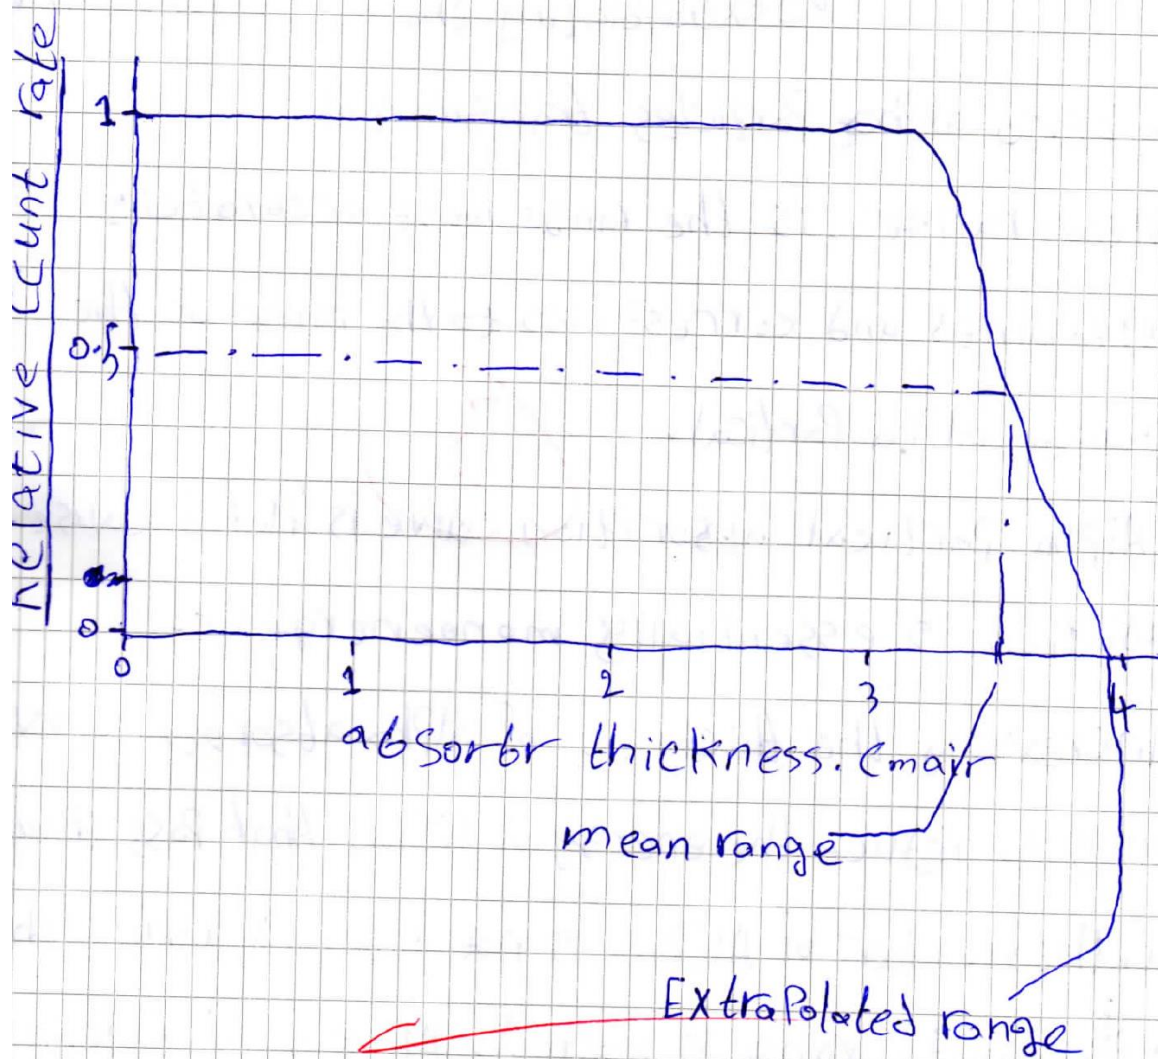 Relative Count rate
1
0.5
0
0
1
2
3
4
absorbr thickness. Cmair
mean range
Extrapolated range